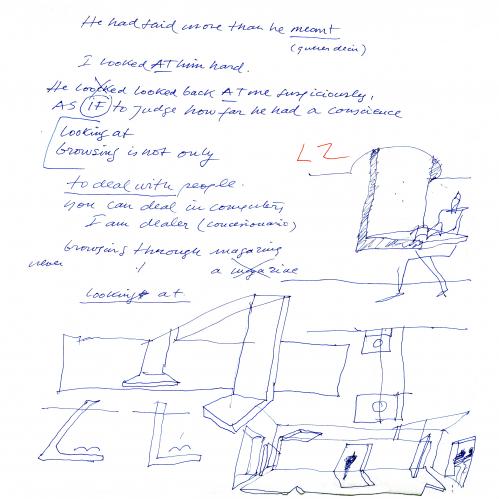 He had said more than he meant
(querer decir)
I looked AT him hard.
He looked looked back AT me suspiciously,
AS IF to judge how far he had a conscience
looking at
browsing is not only
LZ
to deal with people.
you can deal in computers
I am dealer (concesionario)
browsing through magazine
never
a magazine
looking at